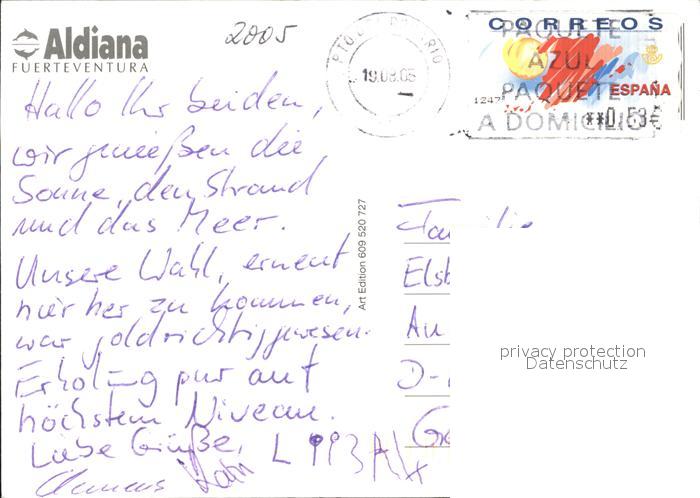 Aldiana
FUERTEVENTURA
2005
PTO DEL ROSARIO
19.08.05
CORREOS
PAQUETE
AZUL
PAQUETE
A DOMICILIO
ESPAÑA
1247
**0,53€
Hallo Ihr beiden,
wir genießen die
Sonne, den Strand
und das Meer.
Unsere Wahl, erneut
hierher zu kommen,
war goldrichtig gewesen.
Erholung pur auf
höchstem Niveau.
Liebe Grüße,
Art Edition 609 520 727
Familie
Elsb
An
D-
privacy protection
Datenschutz